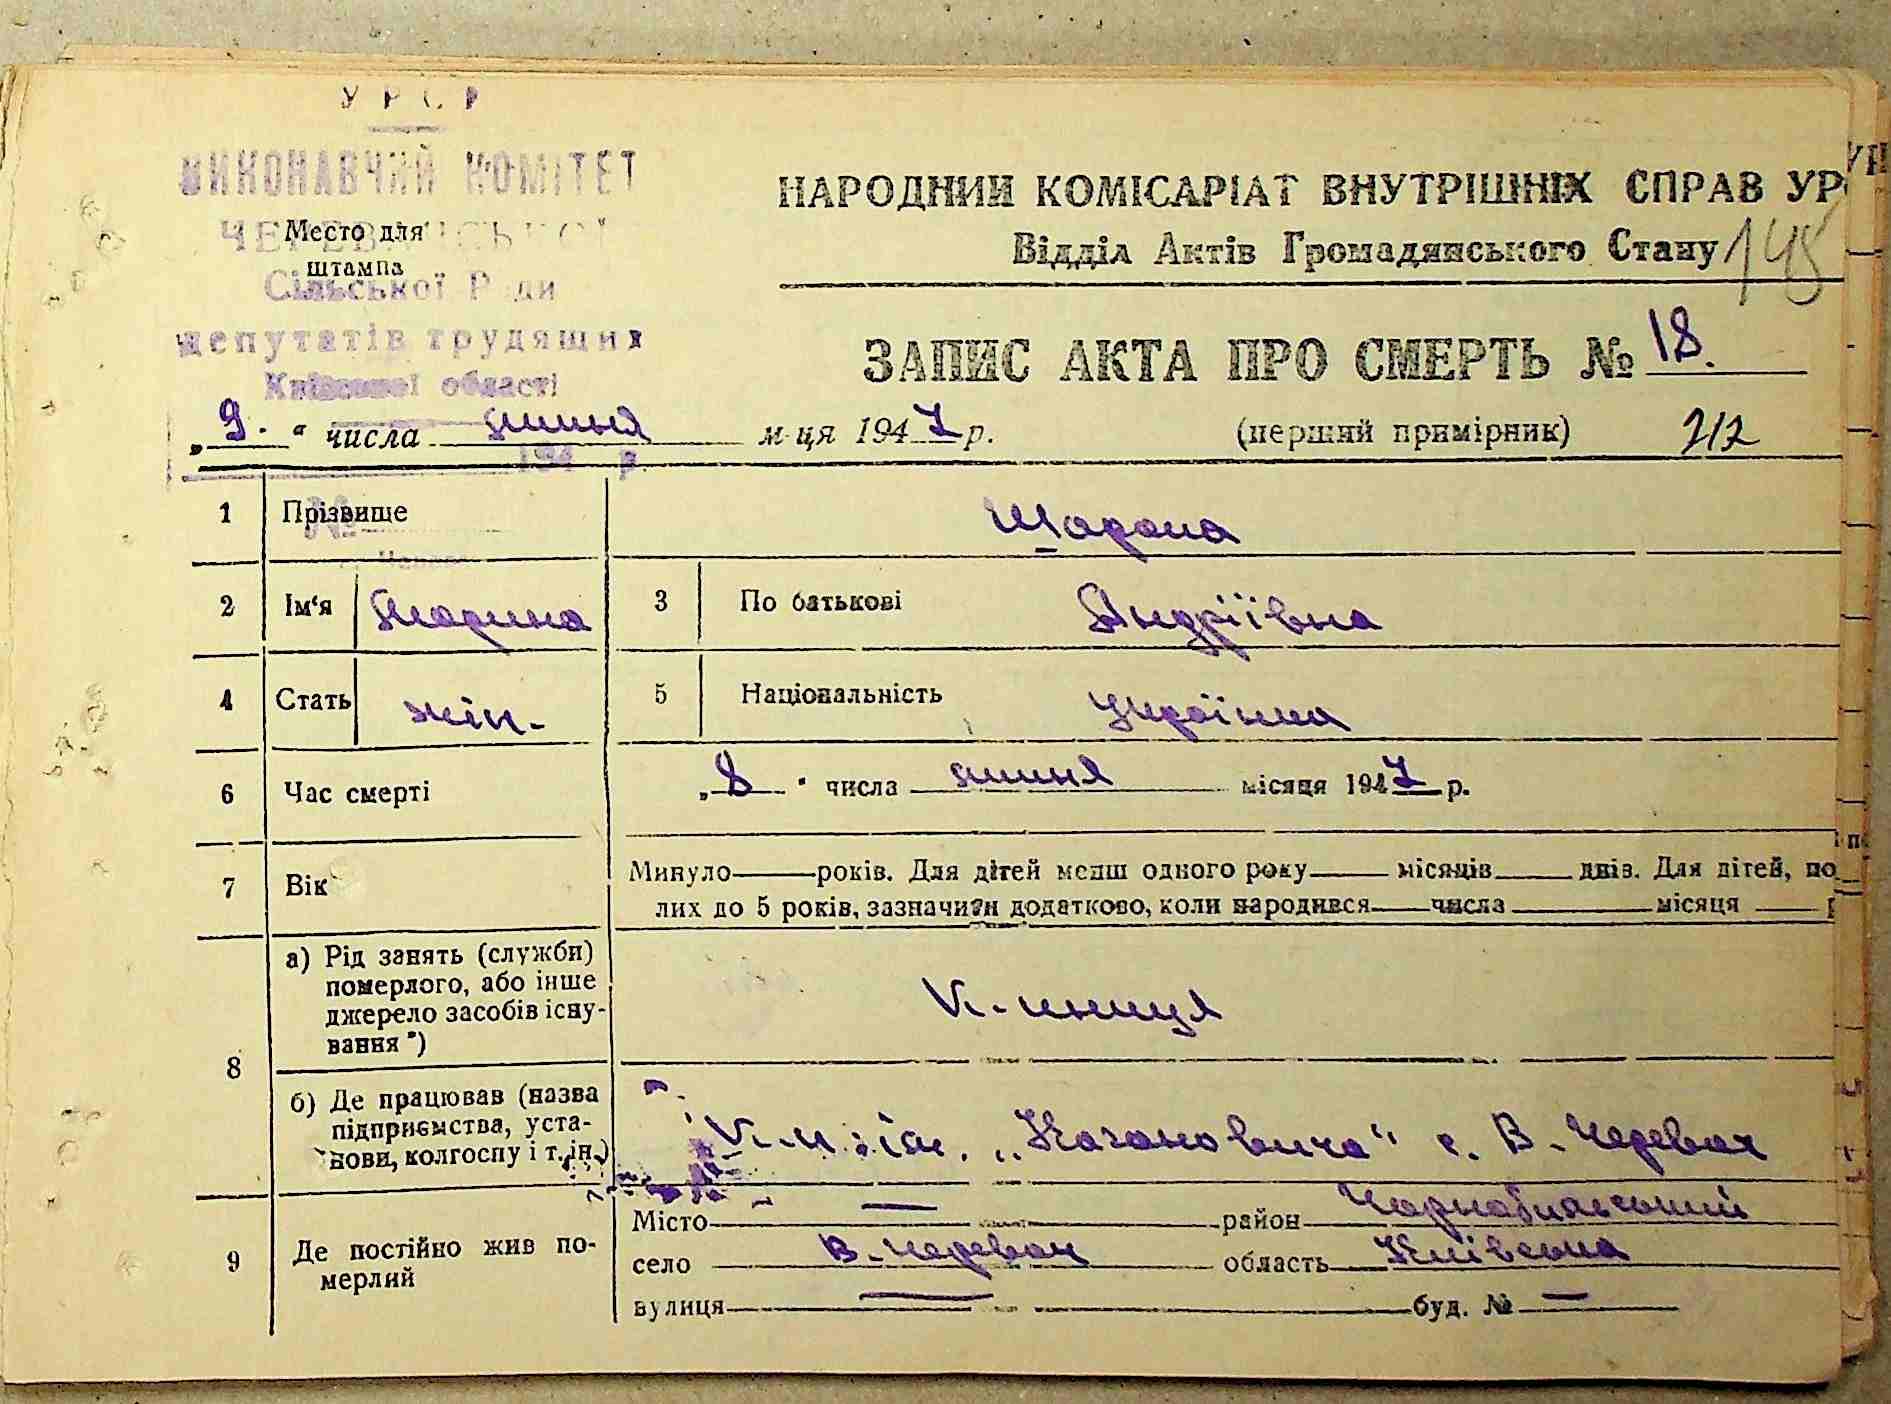 УРСР
ВИКОНАВЧИЙ КОМІТЕТ
Место для
штампа
Сільської Ради
депутатів трудящих
Київської області
НАРОДНИЙ КОМІСАРІАТ ВНУТРІШНІХ СПРАВ УР
Відділ Актів Громадянського Стану 145
ЗАПИС АКТА ПРО СМЕРТЬ № 18.
„9.“ числа липня м-ця 1947 р. (перший примірник) 212
194 р.
1 Прізвище Шарапа
№
2 Ім‘я Марина 3 По батькові Андріївна
4 Стать жін. 5 Національність Українка
6 Час смерті „8“ числа липня місяця 1947 р.
7 Вік Минуло ____ років. Для дітей менш одного року ____ місяців ____ днів. Для дітей, по
лих до 5 років, зазначити додатково, коли народився ____ числа ____ місяця ____
8 а) Рід занять (служби)
померлого, або інше
джерело засобів існу-
вання *) к-ниця
б) Де працював (назва
підприємства, уста-
нови, колгоспу і т. ін.) к-п ім. „Кагановича“ с. В-Черевач
9 Де постійно жив по-
мерлий
Місто — район Чорнобильський
село В-Черевач область Київська
вулиця — буд. № —